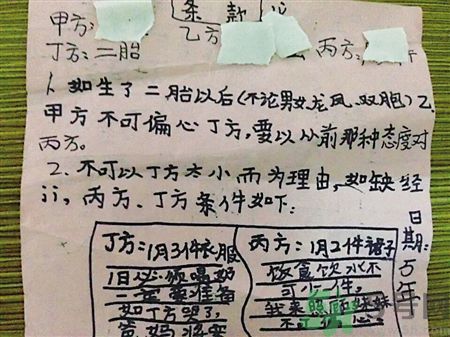 条款
甲方:
乙方
丙方:
丁方:二胎
1、如生了二胎以后(不论男女龙凤、双胞)乙
甲方不可偏心丁方,要以从前那种态度对
丙方。
2、不可以丁方太小而为理由,如缺经
丙方、丁方条件如下:
丁方:1月3件衣服
1日必须喝奶
一定要准备
如丁方哭了,
爸妈将要
丙方:1月2件裙子
饭食饮水不
可少一件,
我来照顾妹妹
不
心。
日期:万年